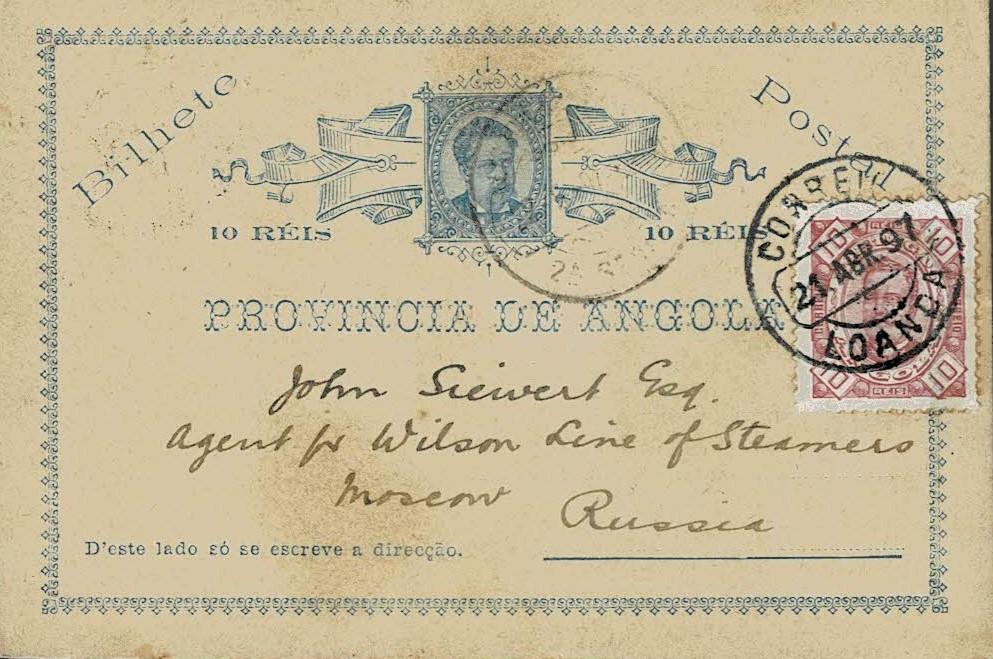 Bilhete Postal
10 RÉIS 10 RÉIS
PROVINCIA DE ANGOLA
CORREIO
21 ABR. 97
LOANDA
10 REIS 10
ANGOLA
10 REIS 10
John Siewert Esq.
Agent for Wilson Line of Steamers
Moscow
Russia
D'este lado só se escreve a direcção.